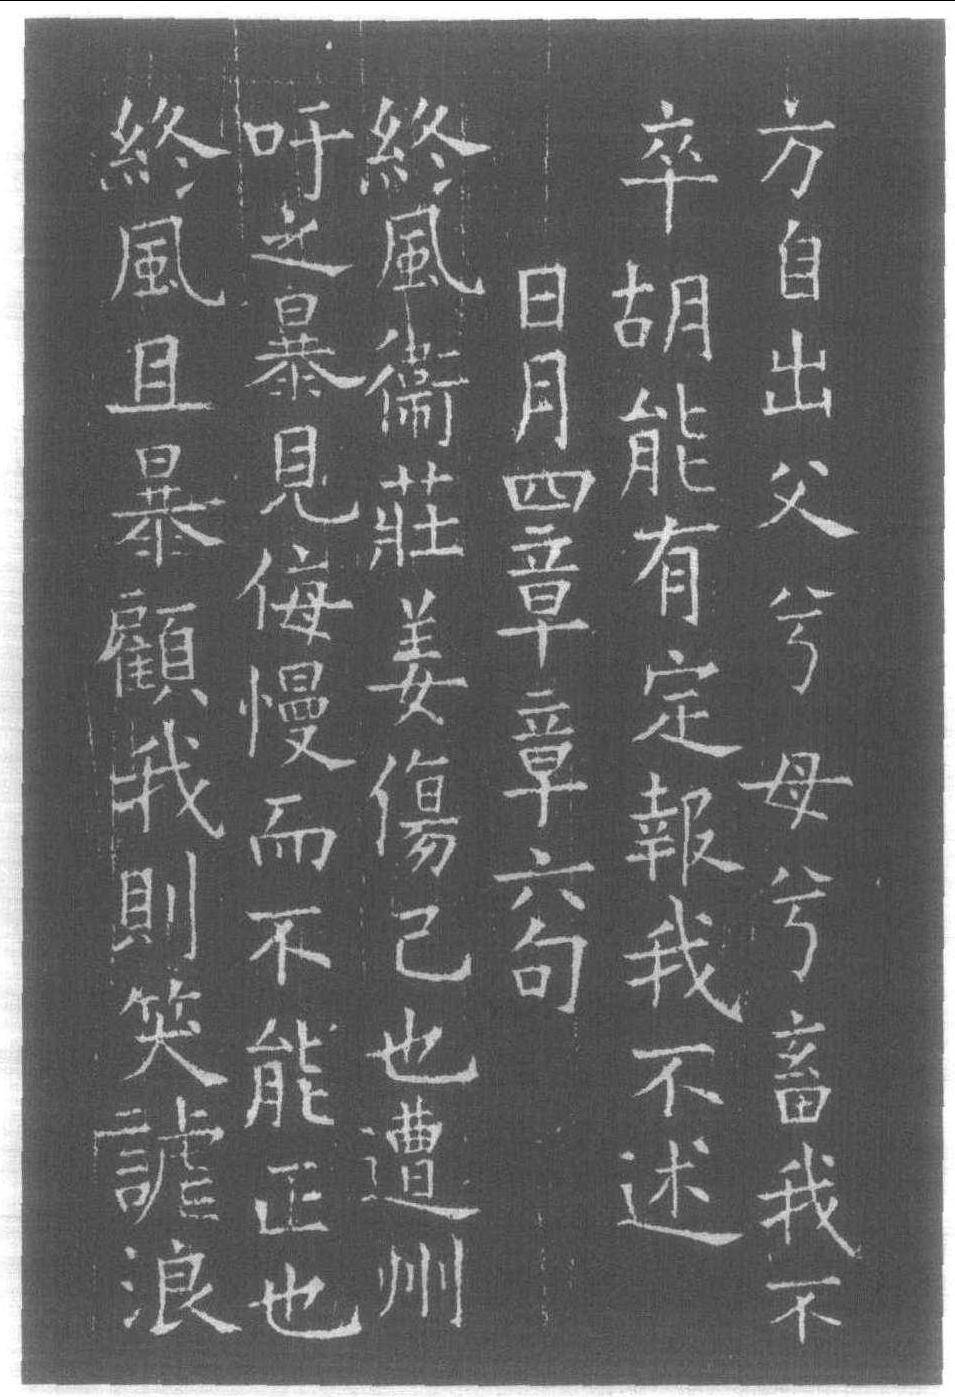 方自出父兮母兮畜我不
卒胡能有定報我不述
日月四章章六句
終風衞莊姜傷己也遭州
吁之暴見侮慢而不能正也
終風且暴顧我則笑謔浪